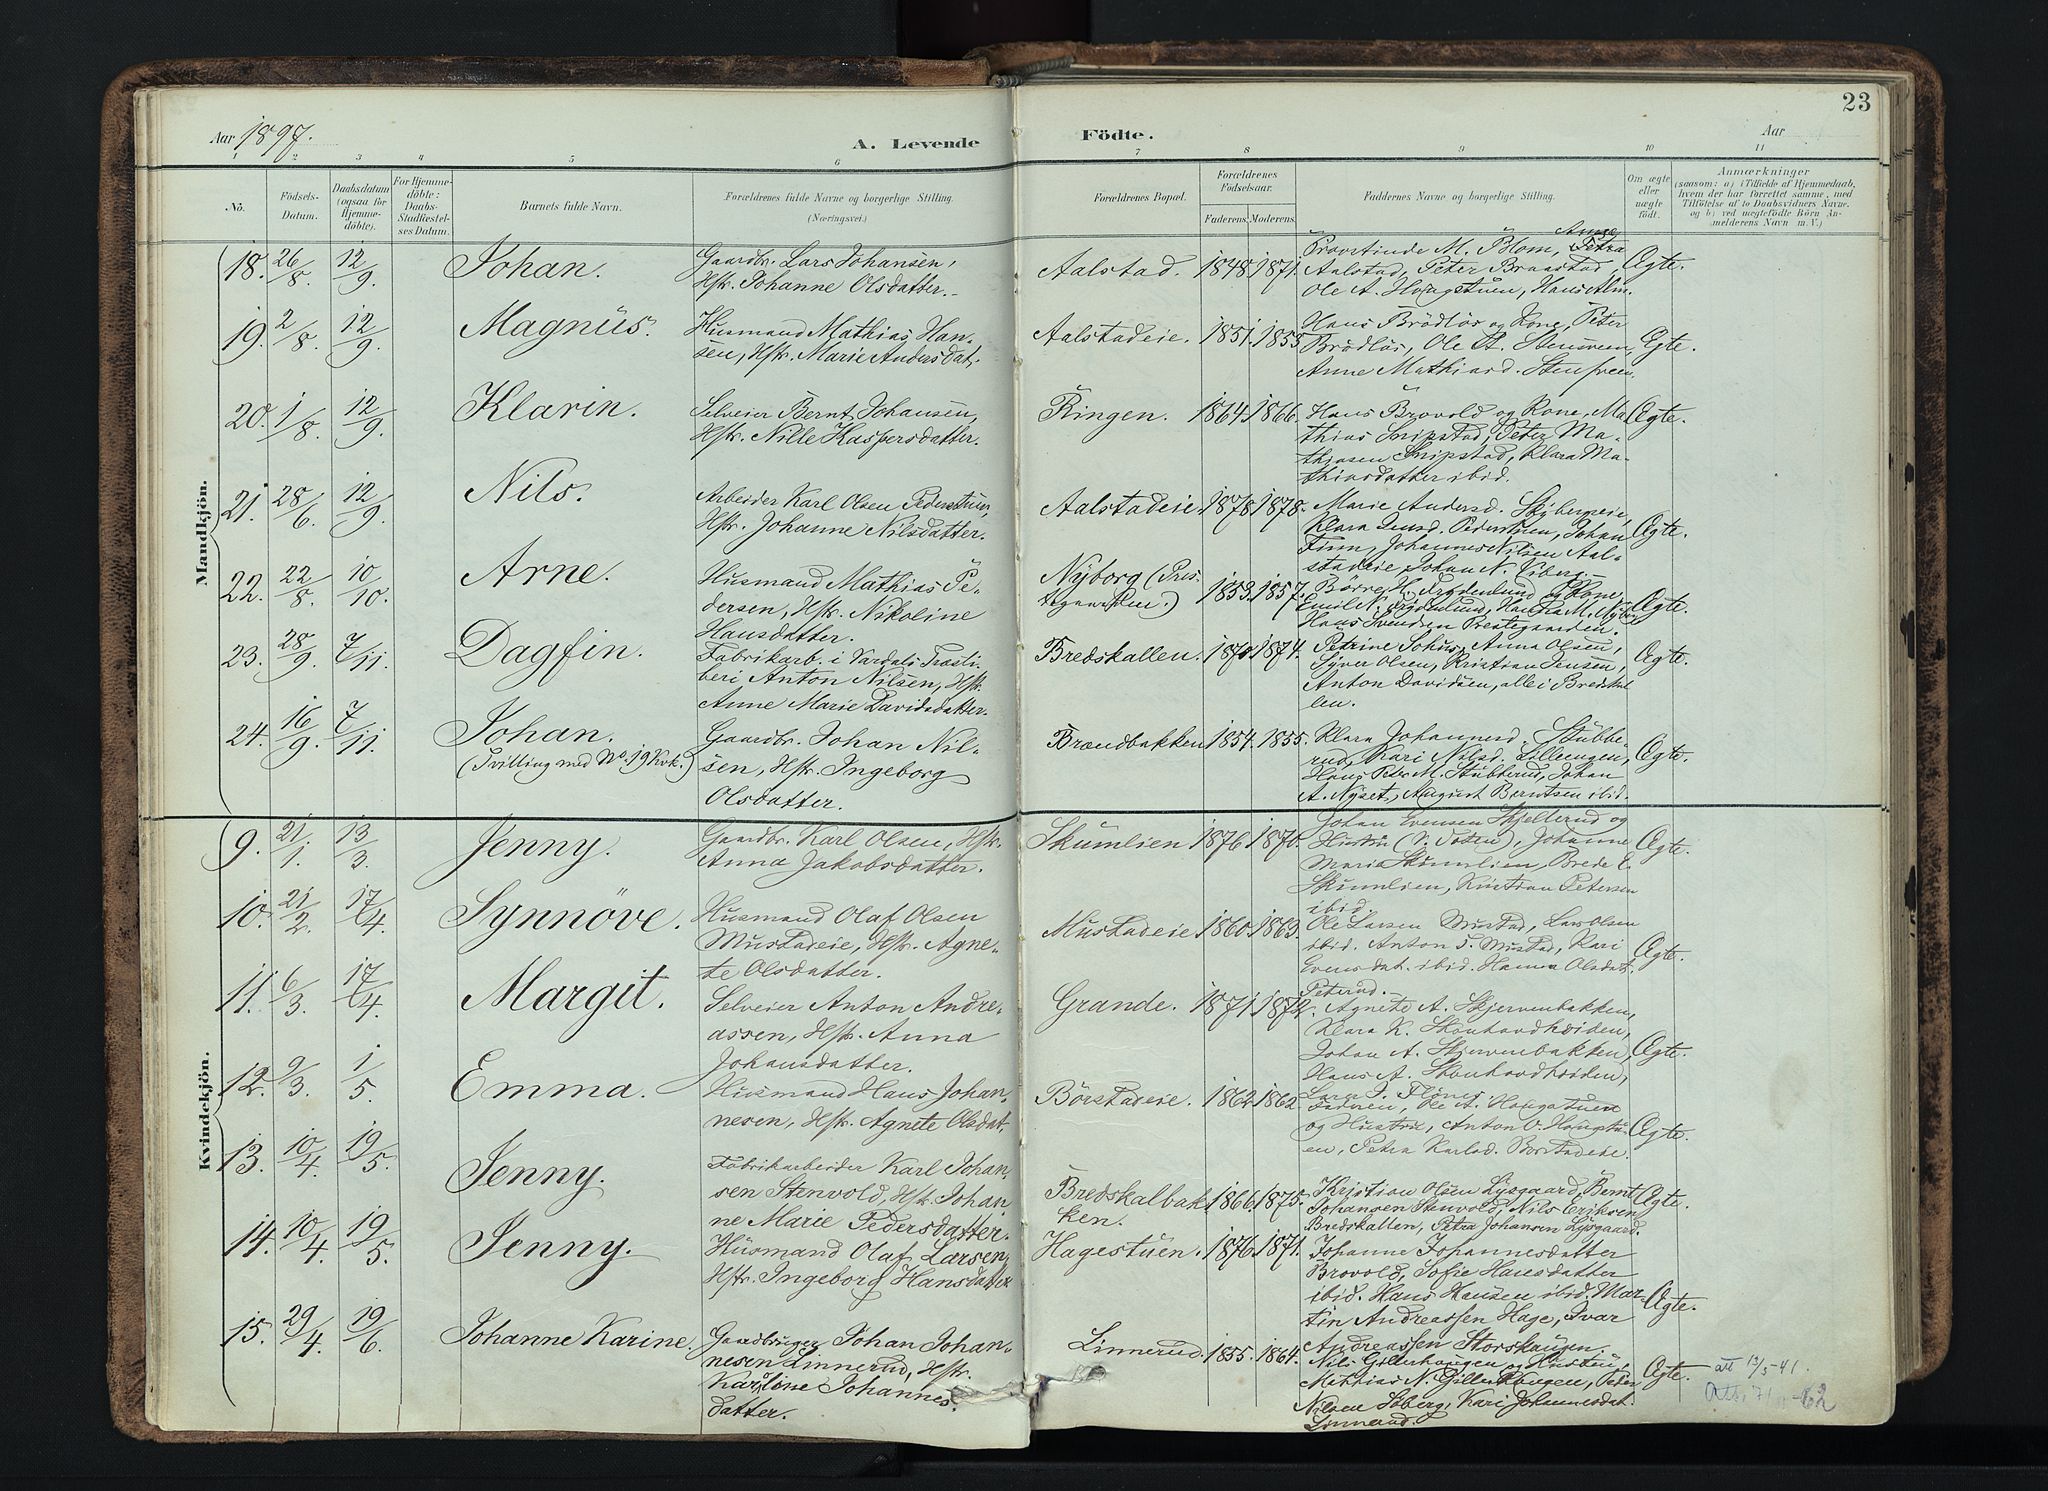 23
Aar 1897.
A. Levende
Födte.
Aar
1 2 3 4 5 6 7 8 9 10 11
No.
Födsels-
Datum.
Daabsdatum
(ogsaa for
Hjemme-
döbte).
For Hjemme-
döbte:
Daabs-
Stadfæstel-
ses Datum.
Barnets fulde Navn.
Forældrenes fulde Navne og borgerlige Stilling.
(Næringsvei.)
Forældrenes Bopæl.
Forældrenes
Födselsaar.
Faderens. Moderens.
Faddernes Navne og borgerlige Stilling.
Om ægte
eller
uægte
født.
Anmærkninger
(saasom: a) i Tilfælde af Hjemmedaab,
hvem der har forrettet samme, med
Tilföielse af to Daabsvidners Navne,
og b) ved uægtefödte Börn An-
melderens Navn m. V.)
Mandkjön.
18. 26/8. 12/9. Johan. Gaardbr. Lars Johansen,
Hstr. Johanne Olsdatter.
Aalstad. 1848. 1871.
Provstinde M. Blom, Petra
Aalstad, Peter Braastad,
Ole A. Hougstuen, Hans Alm.
Ægte.
19. 2/8. 12/9. Magnus. Husmand Mathias Han-
sen, Hstr. Marie Andersdat.
Aalstadeie. 1851. 1855.
Hans Brödlös og Kone, Peter
Brödlös, Ole A. Stensveen,
Anne Mathiasd. Stensveen.
Ægte.
20. 1/8. 12/9. Klarin. Selveier Bernt Johansen,
Hstr. Nille Kaspersdatter.
Ringen. 1864. 1866.
Hans Brovold og Kone, Ma-
thias Snipstad, Peter Ma-
thiasen Snipstad, Klara Ma-
thiasdatter ibid.
Ægte.
21. 28/6. 12/9. Nils. Arbeider Karl Olsen Pedersstuen,
Hstr. Johanne Nilsdatter.
Aalstadeie. 1878. 1878.
Marie Andersd. Skybergeie,
Klara Pedersstuen, Johan
Johannes Nilsen Aal-
stadeie, Johan N. Viberg.
Ægte.
22. 22/8. 10/10. Arne. Husmand Mathias Pe-
dersen, Hstr. Nikoline
Hansdatter.
Nyborg (Pres-
tegaarden.) 1853. 1857.
Börre H. Frydenlund og Kone,
Emil N. Frydenlund,
Hans Svendsen Prestegaarden.
Ægte.
23. 28/9. 7/11. Dagfin. Fabrikarb. i Vardals Træsli-
beri Anton Nilsen, Hstr.
Anne Marie Davidsdatter.
Bredskallen. 1870. 1874.
Petrine Anna Olsen,
Syver Olsen, Kristian Jensen,
Anton Davidsen, alle i Bredskal-
len.
Ægte.
24. 16/9. 7/11. Johan.
(Tvilling med No. 19 Kvk.)
Gaardbr. Johan Nil-
sen, Hstr. Ingeborg
Olsdatter.
Brændbakken 1854. 1855.
Klara Johannesd. Stubbe-
rud, Kari Nilsd. Lilleengen,
Hans Peter M. Stubberud, Johan
A. Nyset, August Berntsen ibid.
Ægte.
Kvindekjön.
9. 21/1. 13/3. Jenny. Gaardbr. Karl Olsen, Hstr.
Anna Jakobsdatter.
Skumlien 1876 1870.
Johan Evensen Skjelterud og
Hustru (V. Toten), Johanne
Maria Skumlien, Brede E.
Skumlien, Kristian Petersen
ibid.
Ægte.
10. 21/2. 17/4. Synnöve. Husmand Olaf Olsen
Mustadeie, Hstr. Agne-
te Olsdatter.
Mustadeie. 1860. 1863.
Ole Larsen Mustad, Lars Olsen
ibid. Anton T. Mustad, Kari
Evensdat. ibid. Hanna Olsdat.
Peterud.
Ægte.
11. 6/3. 17/4. Margit. Selveier Anton Andre-
assen, Hstr. Anna
Johansdatter.
Grande. 1871. 1872.
Agnete A. Skjervenbakken,
Klara K. Skouhovdhöiden,
Johan A. Skjervenbakken,
Hans A. Skouhovdhöiden,
Ægte.
12. 9/3. 1/5. Emma. Husmand Hans Johan-
nesen, Hstr. Agnete Olsdat.
Börstadeie. 1862 1862
Lars J.
Ole A. Hougstuen
og Hustru, Anton O. Hougstu-
en, Petra Karlsd. Börstadeie.
Ægte.
13. 10/4. 19/5. Jenny. Fabrikarbeider Karl Johan-
sen Stenvold, Hstr. Johan-
ne Marie Pedersdatter.
Bredskalbak-
ken. 1866. 1875.
Kristian Olsen Lysgaard, Bernt
Johansen Stenvold, Nils Eriksen
Bredskallen, Petra Johansen Lysgaard.
Ægte.
14. 10/4. 19/5. Jenny. Husmand Olaf Larsen,
Hstr. Ingeborg Hansdatter
Hagestuen. 1876. 1871.
Johanne Johannesdatter
Brovold, Sofie Hansdatter
ibid. Hans Hansen ibid. Mar-
tin Andreassen Hage, Ivar
Andreassen Storshaugen.
Ægte.
15. 29/4. 19/6. Johanne Karine. Gaardbruger Johan Johan-
nesen Linnerud, Hstr.
Karoline Johannes-
datter.
Linnerud. 1855. 1864.
Nils Gillerhaugen og Hustru,
Mathias N. Gillerhaugen, Peder
Nilsen Söberg, Kari Johannesdat.
Linnerud.
Ægte.
att 13/5-41.